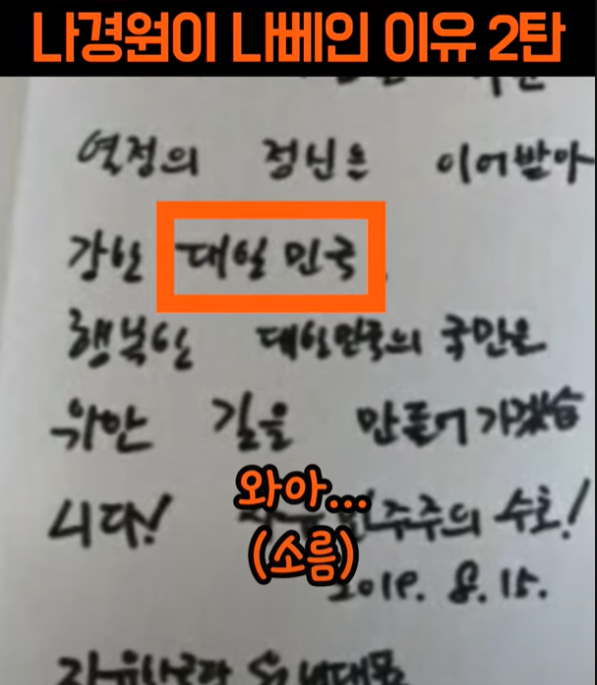 나경원이 나베인 이유 2탄
열정의 정신은 이어받아
강한 대일민국,
행복한 대일민국의 국민을
위한 길을 만들어가겠습
니다! 민주주의 수호!
와아...
(소름)
2019. 8. 15.